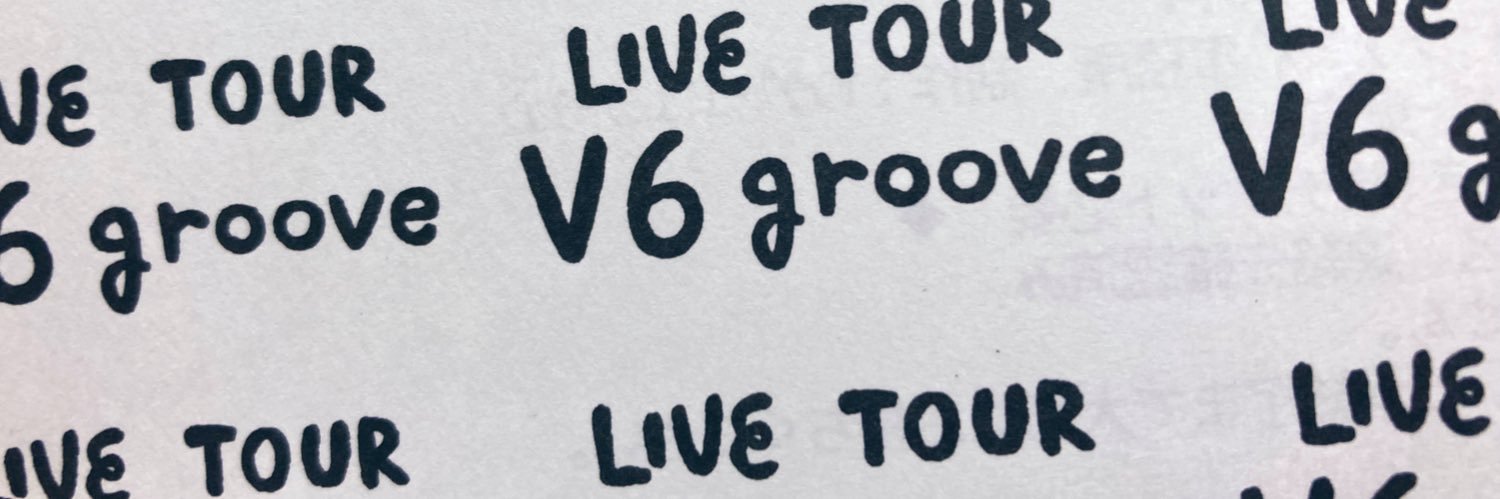 LIVE TOUR
LIVE
VE TOUR
V6 groove
V6 g
6 groove
LIVE TOUR
LIVE
IVE TOUR
V6